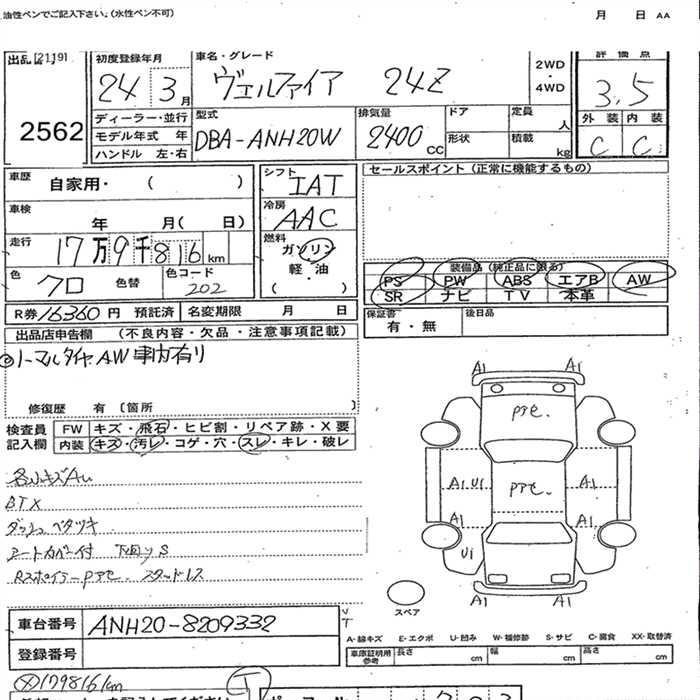 油性ペンでご記入下さい。(水性ペン不可) 月 日 AA
出品 [2119]
2562
初度登録年月 24 3月
車名・グレード ヴェルファイア 24Z
2WD・4WD
評価点 3.5
ディーラー・並行
モデル年式 年
ハンドル 左・右
型式 DBA-ANH20W
排気量 2400 CC
ドア 定員 人
形状 積載 kg
外装 内装
C C
車歴 自家用・( )
シフト IAT
セールスポイント (正常に機能するもの)
車検 年 月( 日)
冷房 AAC
走行 17万9千816km
燃料 ガソリン 軽・油 ( )
色 クロ 色替
色コード 202
装備品 (純正品に限る)
PS PW ABS エアB AW
SR ナビ TV 本革
R券 16360円 預託済 名変期限 月 日
保証書 有・無
後日品
出品店申告欄 (不良内容・欠品・注意事項記載)
ノーマルタイヤAW車内有り
修復歴 有 〔箇所 〕
検査員記入欄
FW キズ・飛石・ヒビ割・リペア跡・X要
内装 キズ・汚レ・コゲ・穴・スレ・キレ・破レ
BTX
ダッシュベタツキ
Rスポイラーpﾃセ. スタッドレス
A1 A1
Pテセ.
A1 U1 Pテセ. A1
A1 A1
U1
A1 A1
スペア
車台番号 ANH20-8209332
登録番号
A-線キズ E-エクボ U-凹み W-補修跡 S-サビ C-腐食 XX-取替済
車庫証明用参考 長さ cm 幅 cm 高さ cm
179816km